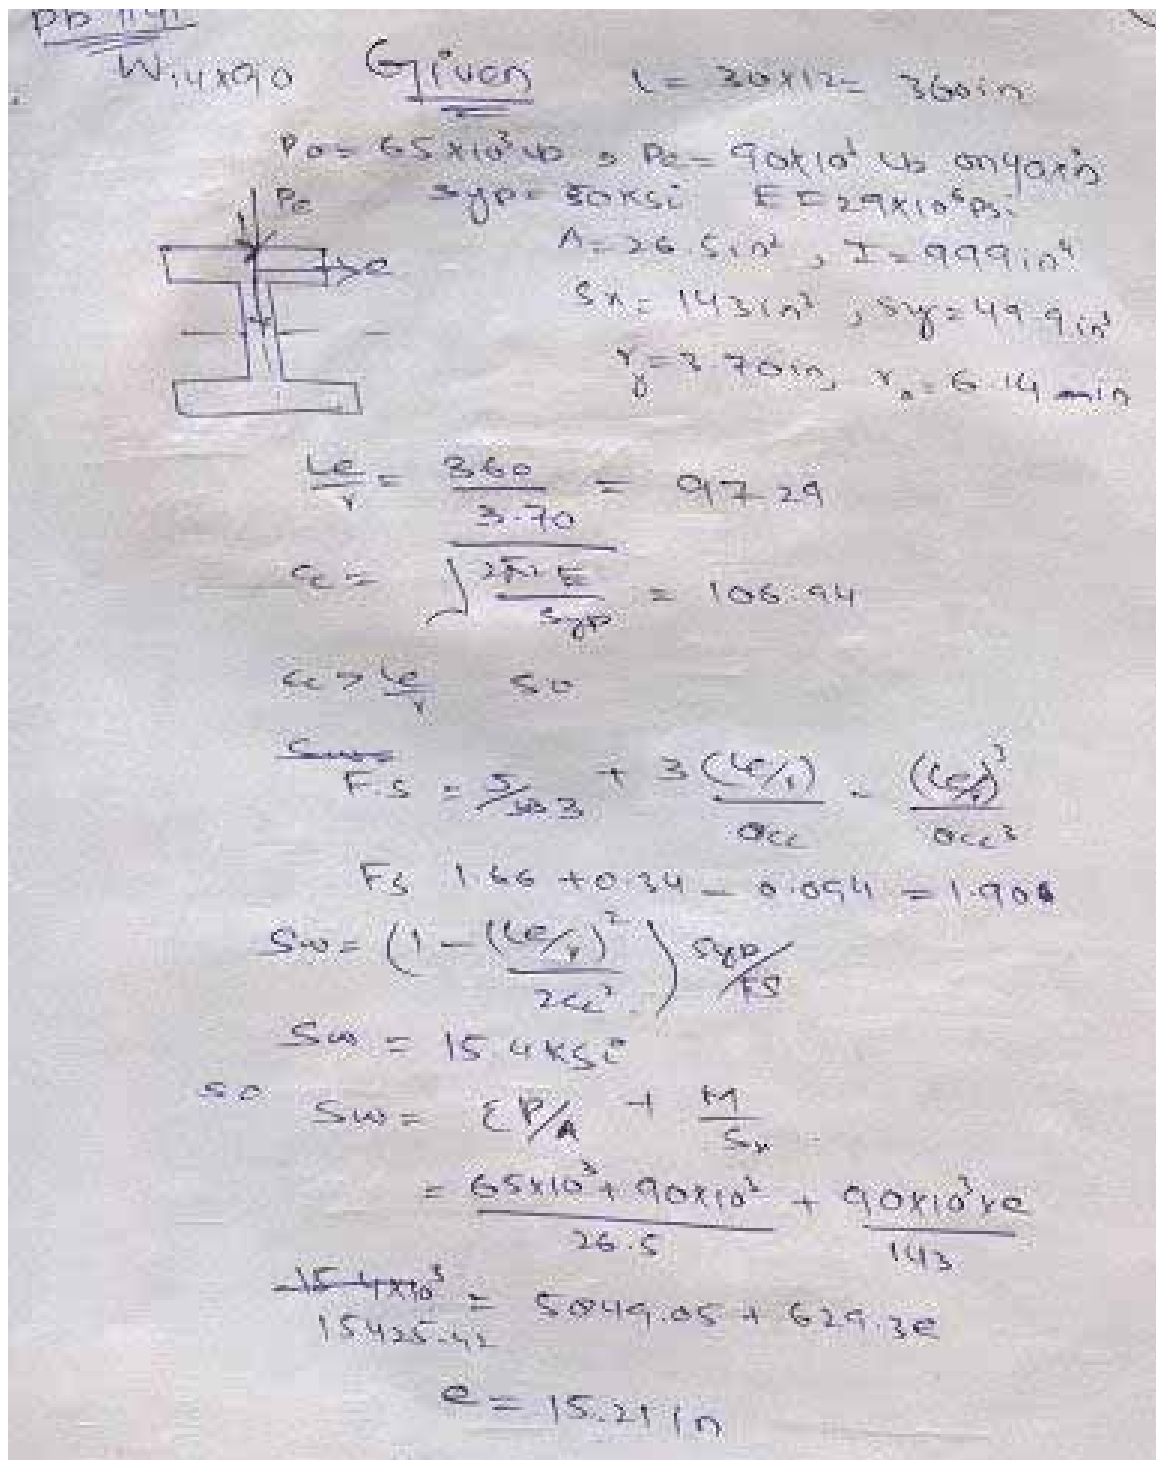 W14x90 Given L = 30x12= 360in
Po= 65x10³ lb , Pe= 90x10³ lb on y axis
Pe
Syp= 50ksi E=29x10⁶ psi
e
A=26.5in² , I=999in⁴
Sx= 143in³ , Sy=49.9in³
ry=3.70in, rx=6.14 in
Le/r = 360/3.70 = 97.29
Cc = √(2π²E/Syp) = 106.94
Cc > Le/r so
F.S = 5/3 + 3(Le/r)/8Cc - (Le/r)³/8Cc³
FS 1.66 +0.34 - 0.094 =1.906
Sw= (1-(Le/r)²/2Cc²) Syp/FS
Sw = 15.4ksi
so Sw= ΣP/A + M/Sx
= 65x10³+90x10³/26.5 + 90x10³xe/143
15.4x10³
15425.42 = 5849.05 + 629.3e
e= 15.21in